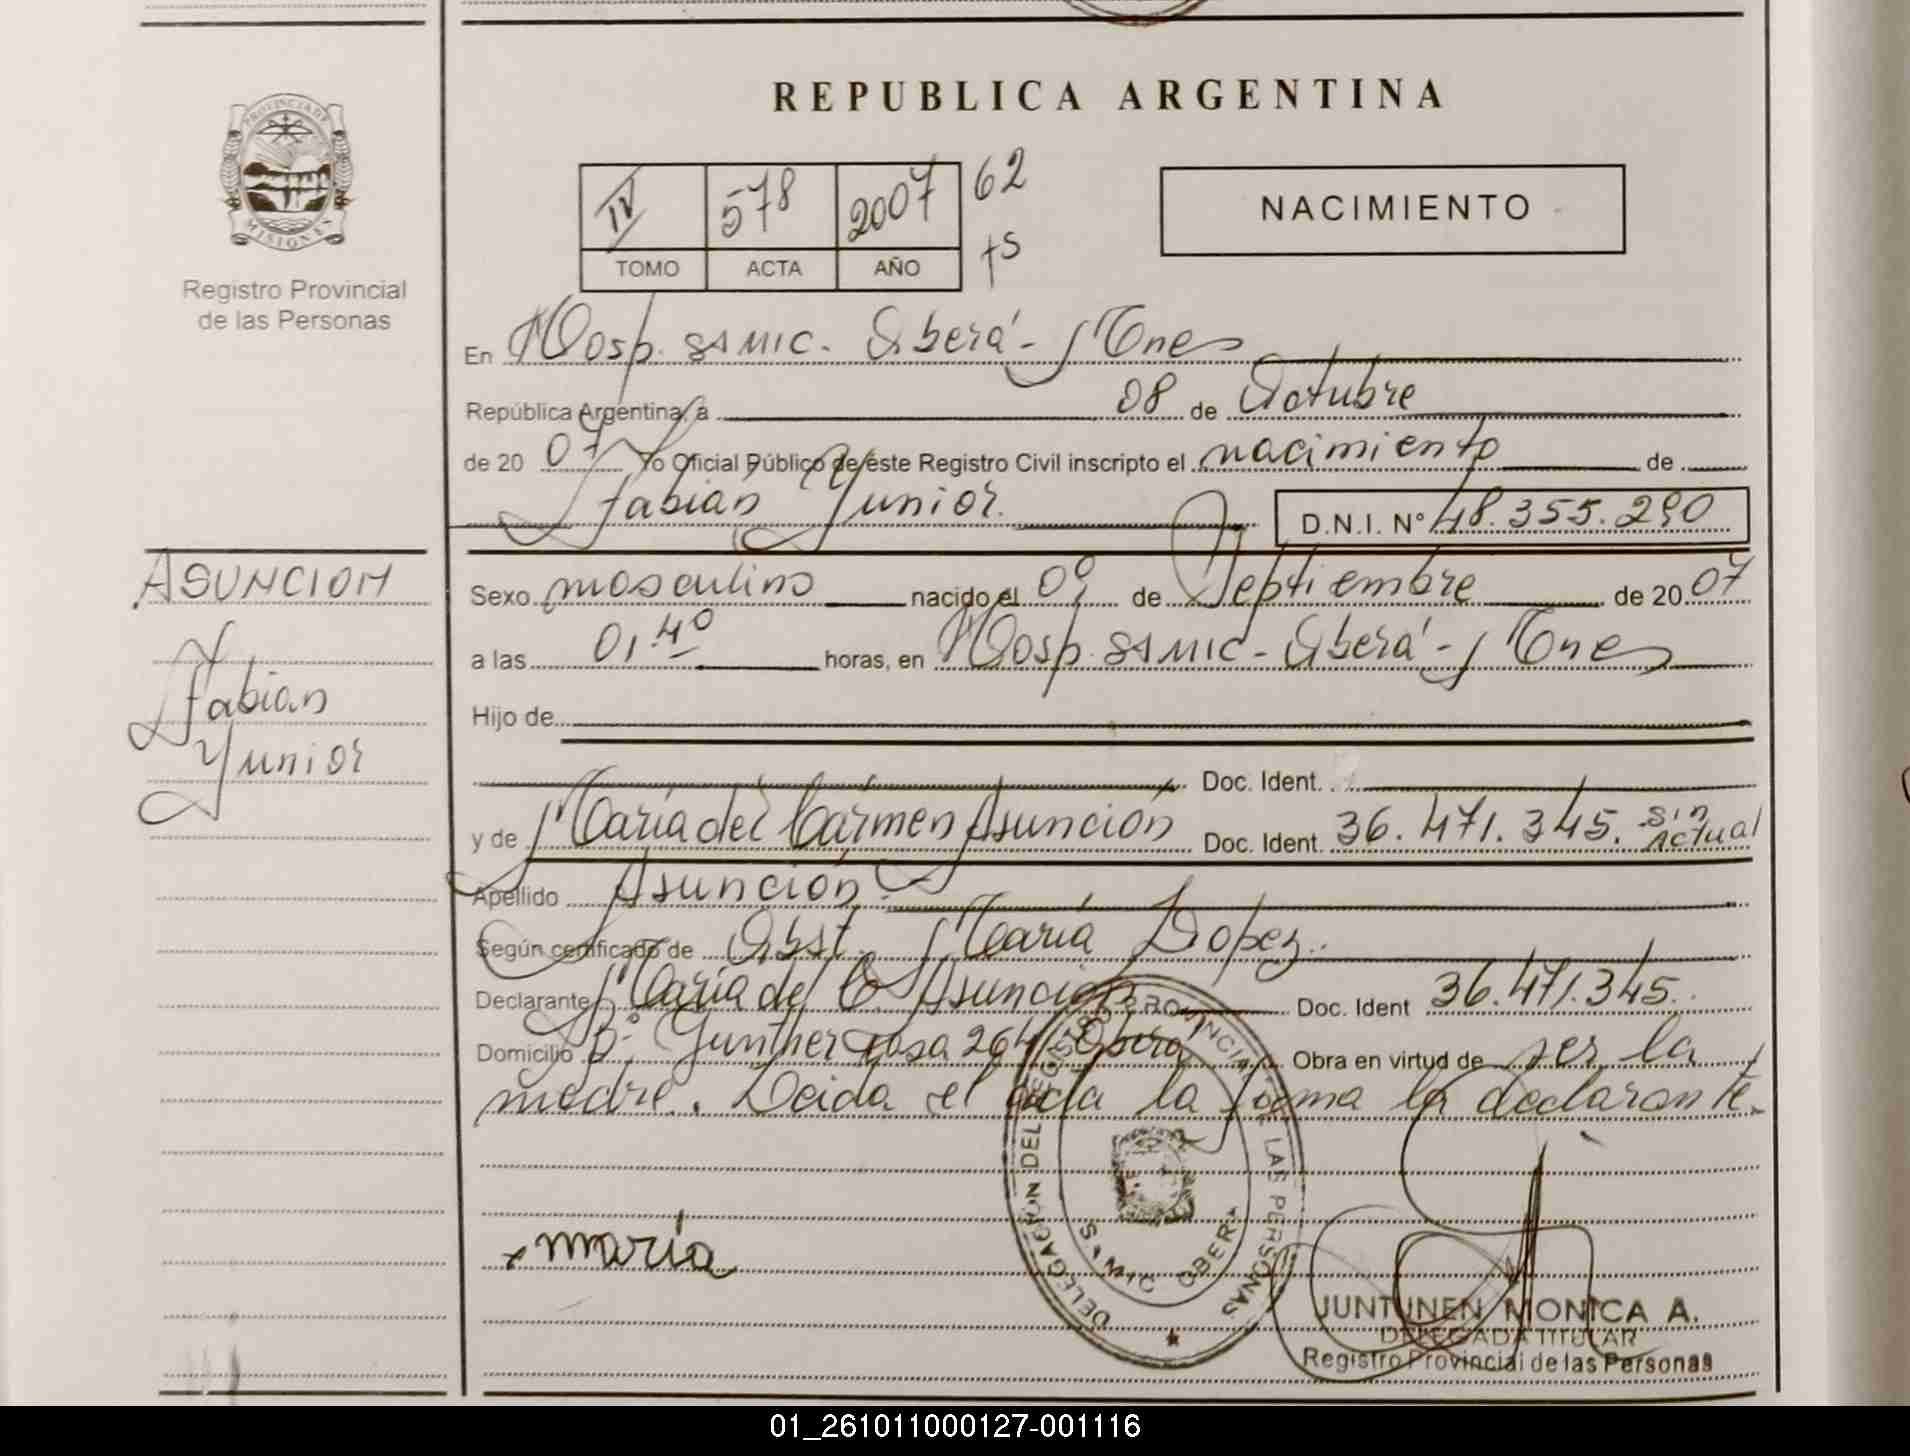 REPUBLICA ARGENTINA
PROVINCIA DE MISIONES
Registro Provincial
de las Personas
IV 578 2007 62
TOMO ACTA AÑO ts
NACIMIENTO
En Hosp. SAMIC. Oberá - Mnes
República Argentina, a 08 de Octubre
de 20 07 Yo Oficial Público de éste Registro Civil inscripto el nacimiento de
Fabián Yunior. D.N.I. Nº 48.355.290
ASUNCION
Fabián
Yunior
Sexo masculino nacido el 09 de Septiembre de 20 07
a las 01.40 horas, en Hosp. SAMIC - Oberá - Mnes
Hijo de
Doc. Ident.
y de María del Cármen Asunción Doc. Ident. 36.471.345. sin actual
Apellido Asunción
Según certificado de Obst. María Lopez.
Declarante María del C. Asunción Doc. Ident 36.471.345.
Domicilio Bº Gunther casa 264 Oberá Obra en virtud de ser la
madre. Leida el acta la firma la declarante.
x maría
DELEGACIÓN DEL REGISTRO PROVINCIAL DE LAS PERSONAS
SAMIC OBERA
JUNTUNEN MONICA A.
DELEGADA TITULAR
Registro Provincial de las Personas
01_261011000127-001116